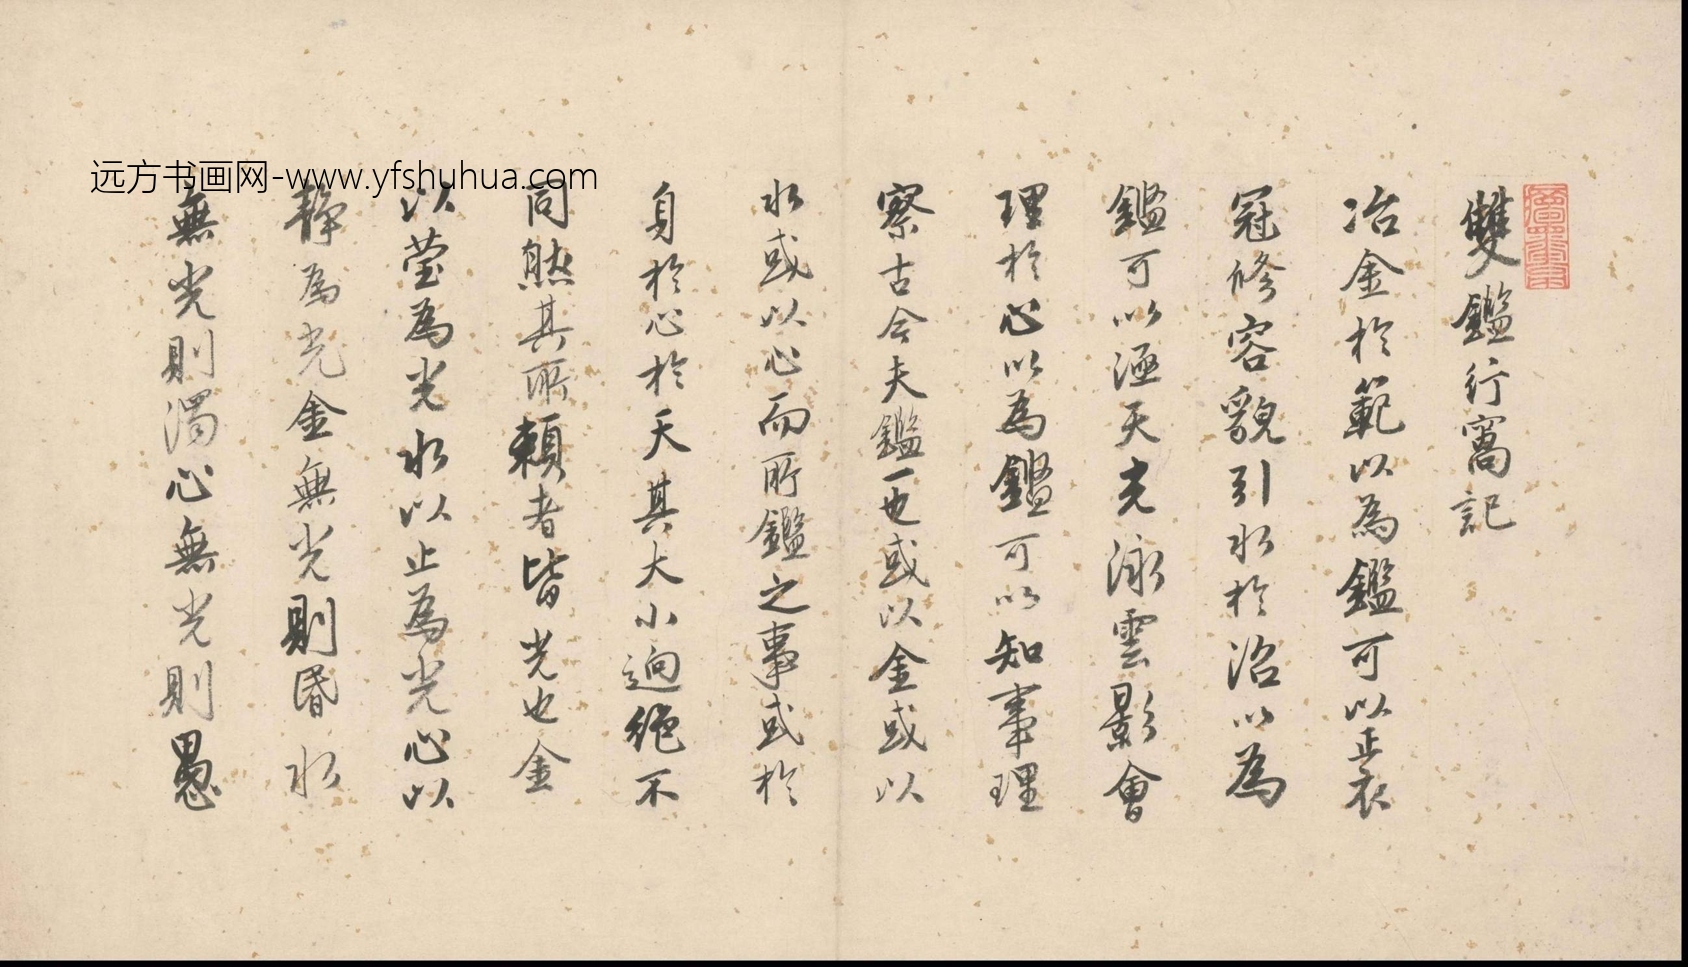 雙鑑行窩記
冶金於範以為鑑可以正衣
冠修容貌引水於沼以為
鑑可以涵天光泳雲影會
理於心以為鑑可以知事理
察古今夫鑑一也或以金或以
水或以心而所鑑之事或於
身於心於天其大小迥絶不
同然其所賴者皆光也金
以瑩為光水以止為光心以
靜為光金無光則昏水
無光則濁心無光則愚
远方书画网-www.yfshuhua.com